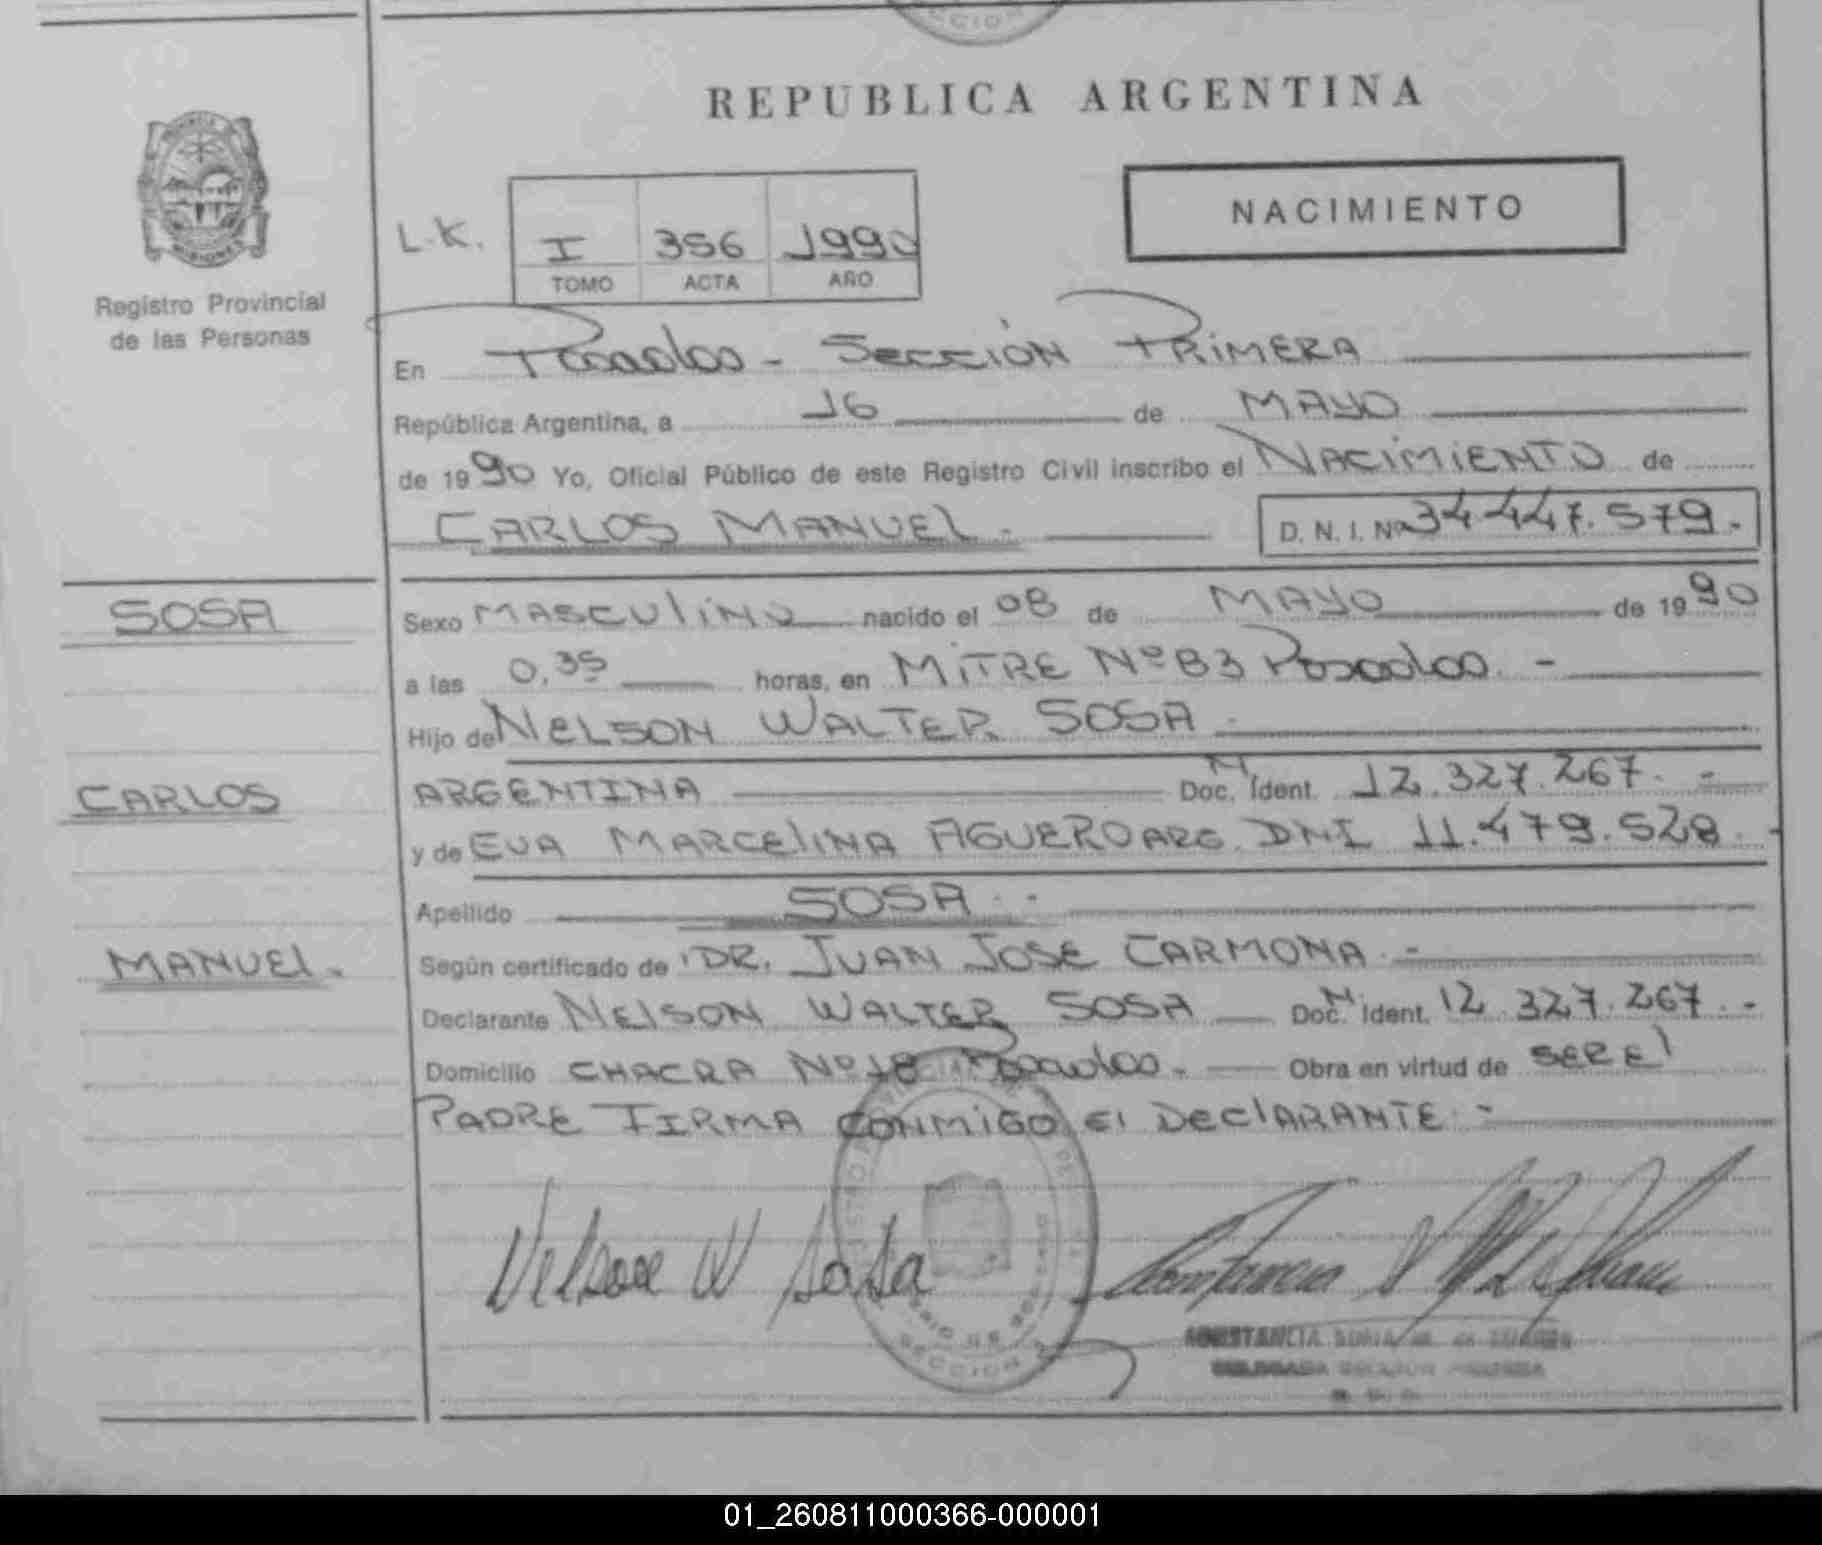 CCIO
REPUBLICA ARGENTINA
NACIMIENTO
L.K. I 356 1990
TOMO ACTA AÑO
MISIONES
Registro Provincial
de las Personas
En Posadas - SECCIÓN PRIMERA
República Argentina, a 16 de MAYO
de 1990 Yo, Oficial Público de este Registro Civil inscribo el NACIMIENTO de
CARLOS MANUEL.- D. N. I. Nº 34.447.579.-
SOSA
Sexo MASCULINO nacido el 08 de MAYO de 1990
a las 0,35 horas, en MITRE Nº 83 Posadas. -
Hijo de NELSON WALTER SOSA.
CARLOS
ARGENTINA Doc. N Ident. 12.327.267. -
y de EVA MARCELINA AGUERO ARG. DNI 11.479.528.-
Apellido SOSA.-
MANUEL.
Según certificado de DR. JUAN JOSE CARMONA.-
Declarante NELSON WALTER SOSA Doc. N Ident. 12.327.267.-
Domicilio CHACRA Nº 18 Posadas.- Obra en virtud de SER El
PADRE FIRMA CONMIGO El DEClARANTE.-
Nelson W Sosa
CONSTANCIA
SECCION
01_260811000366-000001